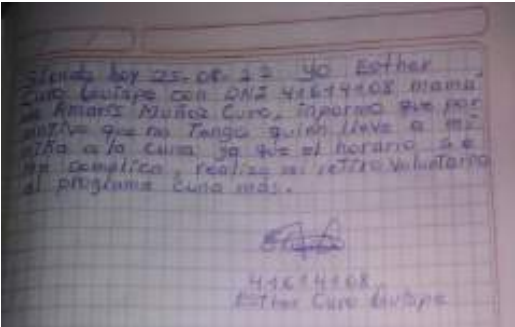 Siendo hoy 25-08-22 yo Esther
Curo con DNI 41614108 mama
de Muñoz Curo, informo que por
motivo que no Tengo quien lleve a mi
niña a la Cuna ya que el horario se
me complica, realizo mi retiro voluntario
al programa cuna mas.
41614108
Esther Curo